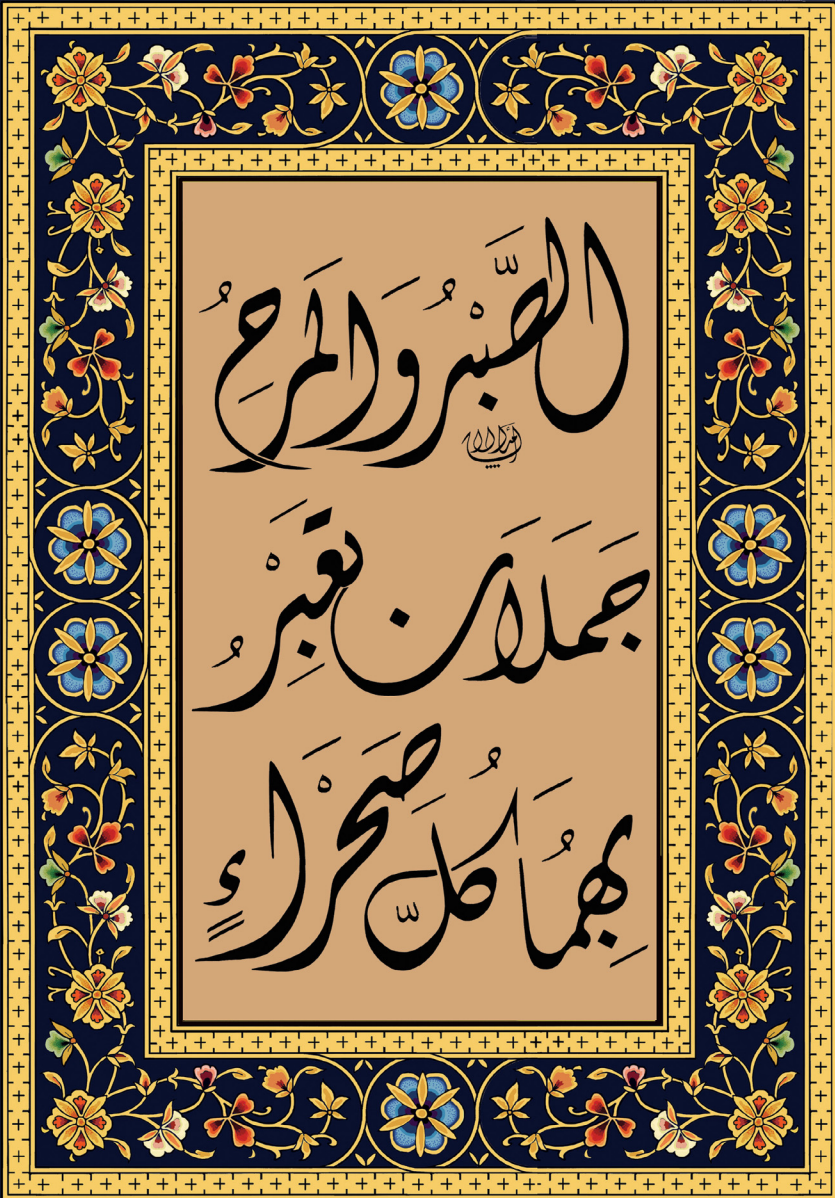 الصَّبْرُ وَالمَرَحُ
جَمَلَانِ تَعْبِرُ
بِهِمُا كُلَّ صَحْرَاءٍ